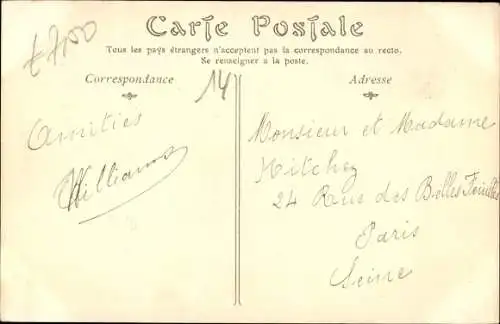 £7,50
Carte Postale
Tous les pays étrangers n'acceptent pas la correspondance au recto.
Se renseigner a la poste.
Correspondance
14
Adresse
Amities
Williams
Monsieur et Madame
Hitchez
24 Rue des Belles Feuilles
Paris
Seine